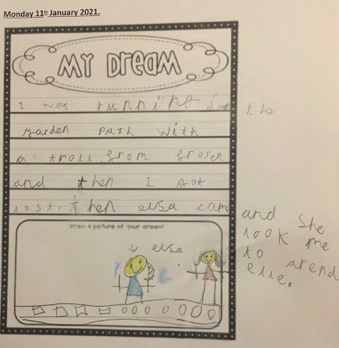 Monday 11th January 2021.
MY DREAM
I was running the
garden path with
a troll from frosen
and then I got
lost. then elsa cam
and she
took me
to
elle.
Draw a picture of your dream!
elsa